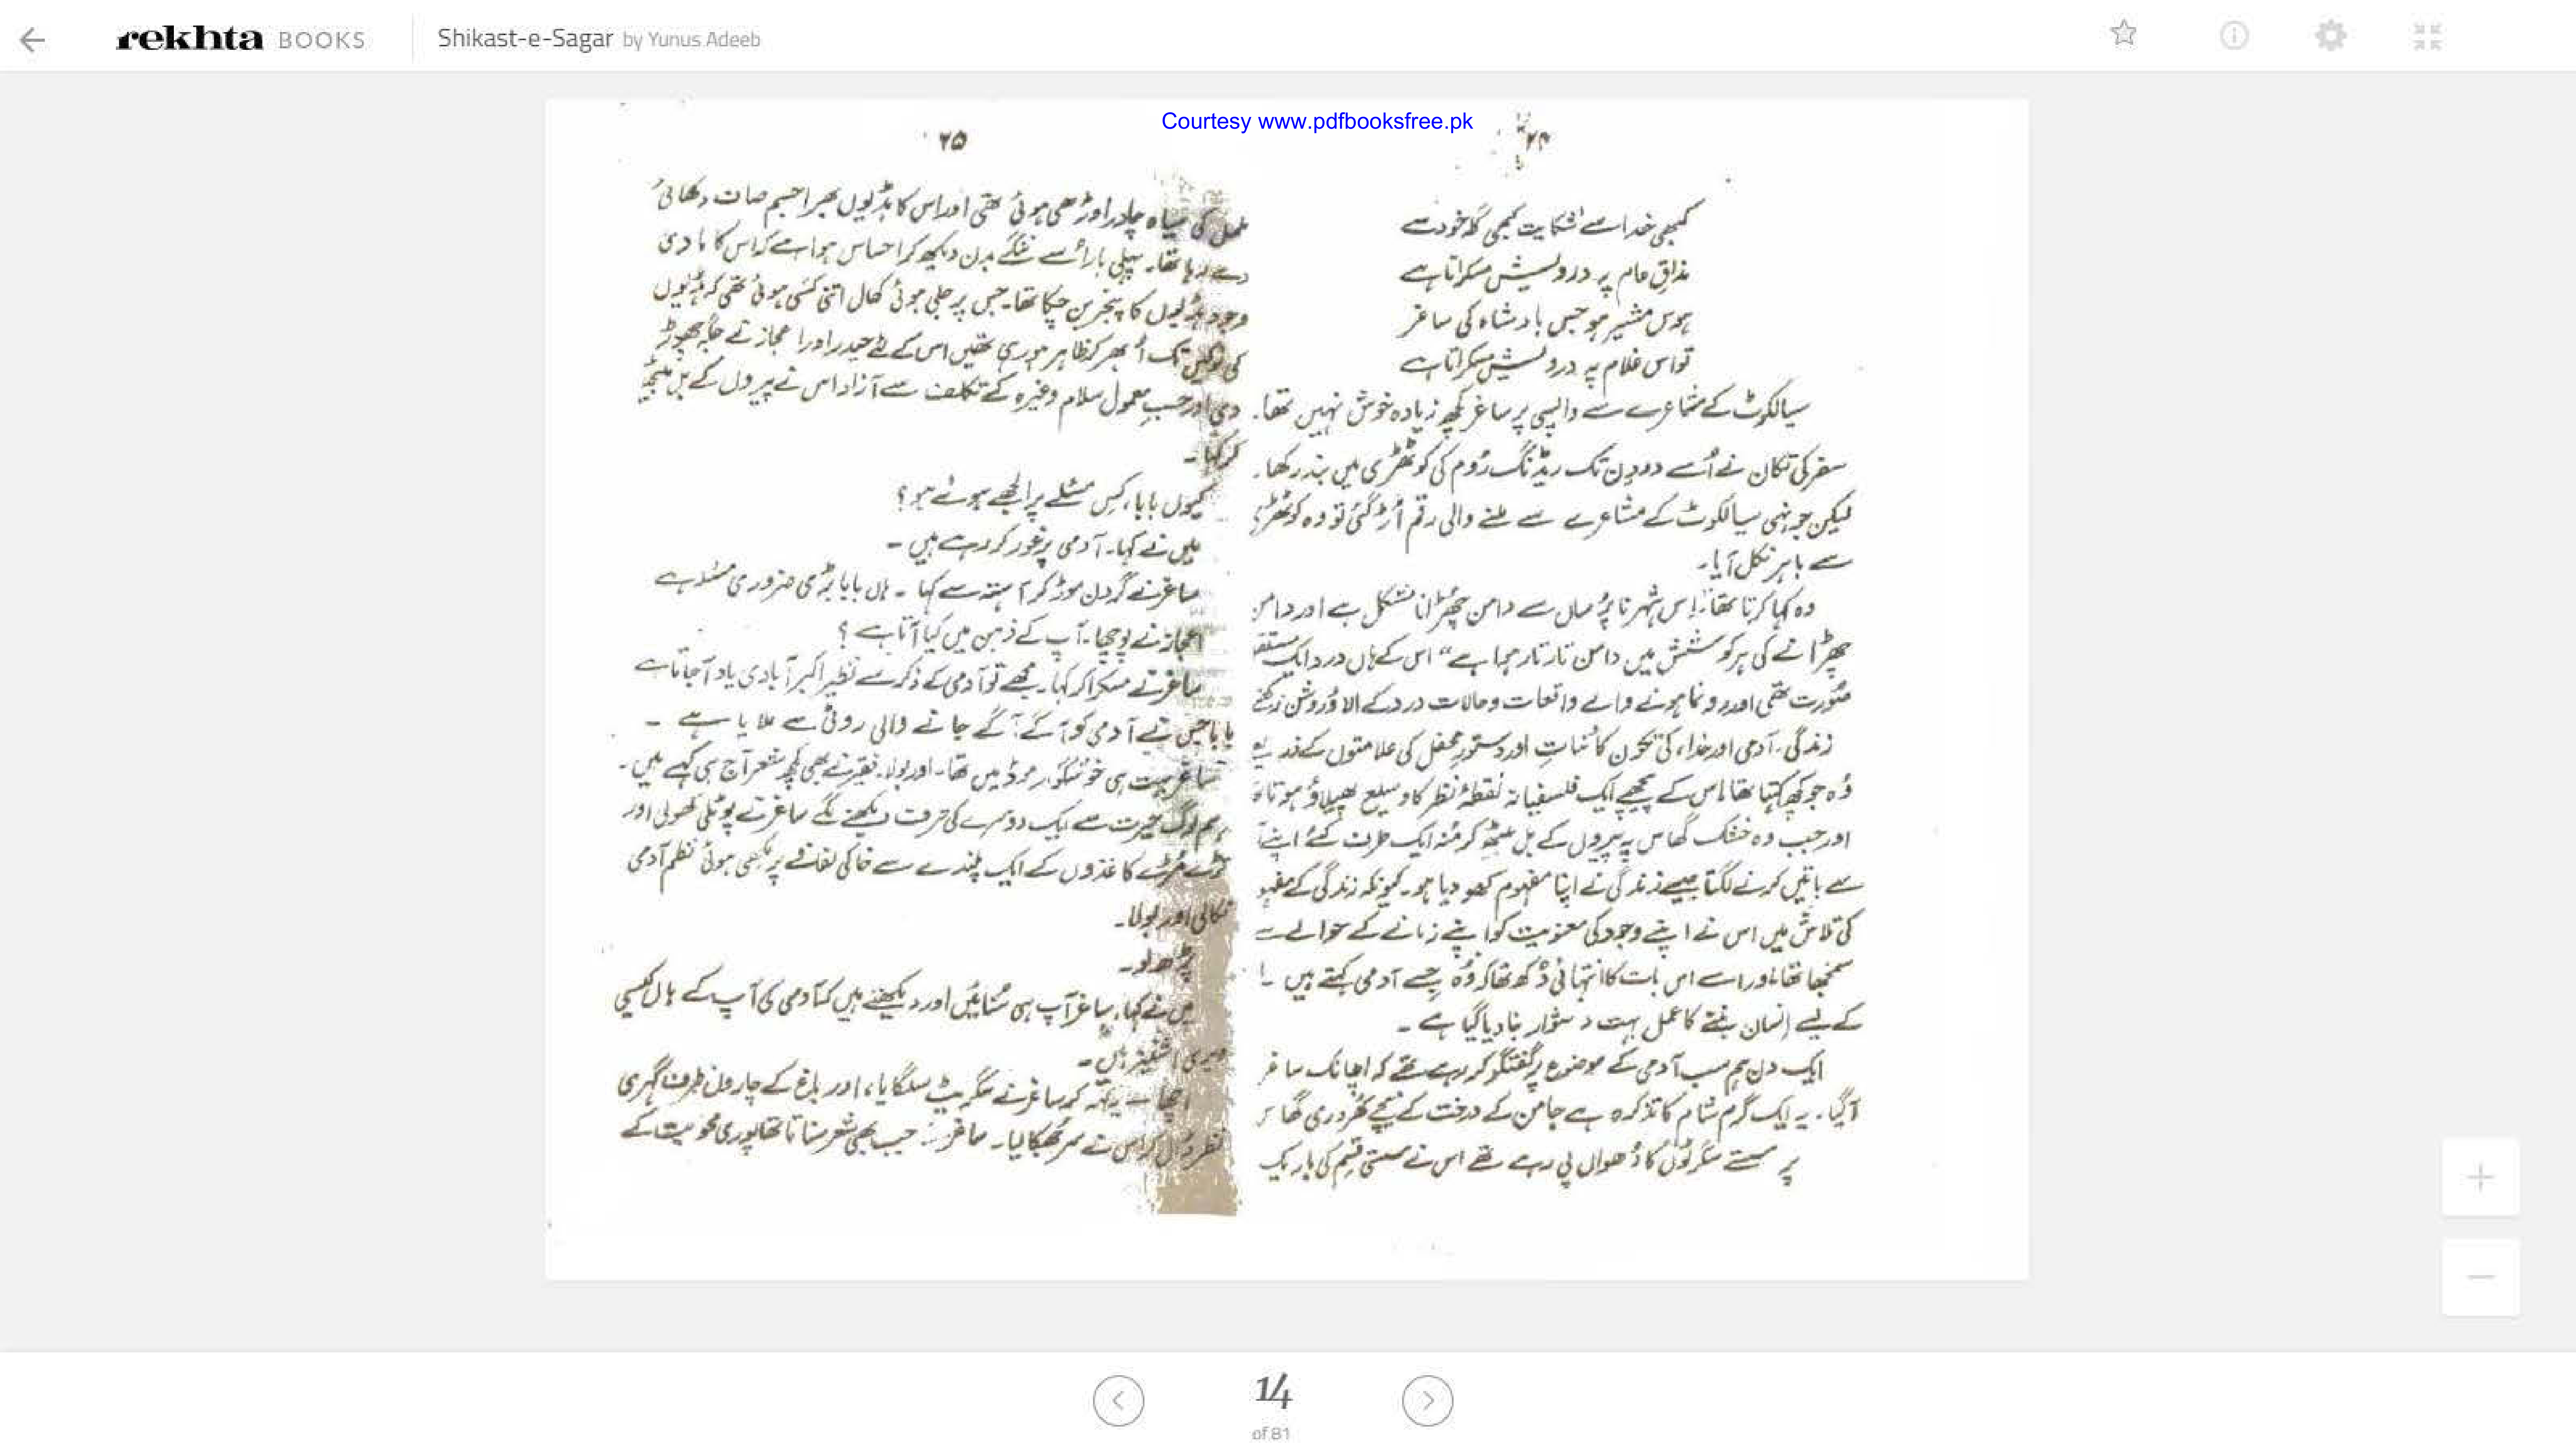 rekhta BOOKS
Shikast-e-Sagar by Yunus Adeeb
Courtesy www.pdfbooksfree.pk
۲۴
کبھی خدا سے شکایت کبھی گلہ خود سے
مذاقِ عام پر درویش مسکراتا ہے
ہوس مشیر ہو جس بادشاہ کی ساغر
تو اس غلام پہ درویش مسکراتا ہے
سیالکوٹ کے مشاعرے سے واپسی پر ساغر کچھ زیادہ خوش نہیں تھا۔
سفر کی تکان نے اُسے دو دن تک ریڈنگ رُوم کی کوٹھڑی میں بند رکھا۔
لیکن جونہی سیالکوٹ کے مشاعرے سے ملنے والی رقم اُڑ گئی تو وہ کوٹھڑی
سے باہر نکل آیا۔
وہ کہا کرتا تھا" اِس شہر ناپُرساں سے دامن چھڑانا مشکل ہے اور دامن
چھڑانے کی ہر کوشش میں دامن تار تار ہوا ہے" اس کے ہاں درد ایک
صُورت تھی اور رونما ہونے والے واقعات و حالات درد کے الاؤ روشن رکھتے
زندگی، آدمی اور خدا، کی تکون کائنات اور دستورِ محفل کی علامتوں کے ذریعے
وُہ جو کچھ کہتا تھا اس کے پیچھے ایک فلسفیانہ نقطۂ نظر کا وسیع پھیلاؤ ہوتا
اور جب وہ خشک گھاس پہ پیروں کے بل بیٹھ کر مُنہ ایک طرف کئے اپنے آپ
سے باتیں کرنے لگتا جیسے زندگی نے اپنا مفہوم کھو دیا ہو۔ کیونکہ زندگی کے مفہوم
کی تلاش میں اس نے اپنے وجود کی معنویت کو اپنے زمانے کے حوالے سے
سمجھا تھا اور اسے اس بات کا انتہائی دُکھ تھا کہ وُہ جسے آدمی کہتے ہیں ۔ اس
کے لیے اِنسان بننے کا عمل بہت دشوار بنا دیا گیا ہے ۔
ایک دن ہم سب آدمی کے موضوع پر گفتگو کر رہے تھے کہ اچانک ساغر
آگیا۔ یہ ایک گرم شام کا تذکرہ ہے جامن کے درخت کے نیچے کھُردری گھاس
پر سستے سگرٹوں کا دُھواں پی رہے تھے اس نے سستی قِسم کی باریک
۲۵
ململ کی سیاہ چادر اوڑھی ہوئی تھی اور اس کا ہڈیوں بھرا جسم صاف دکھائی
دے رہا تھا۔ پہلی بار اُسے ننگے بدن دیکھ کر احساس ہوا ہے کہ اس کا مادی
وجود ہڈیوں کا پنجر بن چکا تھا۔ جس پر جلی ہوئی کھال اتنی کسی ہوئی تھی کہ ہڈیوں
کی نوکیں تک اُبھر کر ظاہر ہو رہی تھیں اس کے لئے حیدر اور اعجاز نے جگہ چھوڑ
دی اور حسبِ معمول سلام وغیرہ کے تکلف سے آزاد اس نے پیروں کے بل بیٹھ
کر کہا۔
کیوں بابا، کِس مسئلے پر اُلجھے ہوئے ہو؟
میں نے کہا۔ آدمی پر غور کر رہے ہیں ۔
ساغر نے گردن موڑ کر آہستہ سے کہا ۔ ہاں بابا بڑی ضروری مسئلہ ہے
اعجاز نے پوچھا۔ آپ کے ذہن میں کیا آتا ہے ؟
ساغر نے مسکرا کر کہا۔ مجھے تو آدمی کے ذکر سے نظیر اکبر آبادی یاد آجاتا ہے
بابا جس نے آدمی کو آگے آگے جانے والی روٹی سے ملایا ہے ۔
ساغر بہت ہی خوشگوار موڈ میں تھا۔ اور بولا۔ فقیر نے بھی کچھ شعر آج ہی کہے ہیں۔
ہم لوگ حیرت سے ایک دوسرے کی طرف دیکھنے لگے ساغر نے پوٹلی کھولی اور
مُڑے کاغذوں کے ایک پلندے سے خاکی لفافے پر لکھی ہوئی نظم آدمی
نکالی اور بولا۔
پڑھ لو۔
میں نے کہا، ساغر آپ ہی سُنائیں اور دیکھتے ہیں کہ آدمی کی آپ کے ہاں کیسی
ہیں۔
اچھا ۔ یہ کہہ کر ساغر نے سگریٹ سلگایا، اور باغ کے چاروں طرف گہری
نظر ڈال کر اس نے سر جھکا لیا۔ ساغر جب بھی شعر سناتا تھا پوری محویت کے
14
of 81